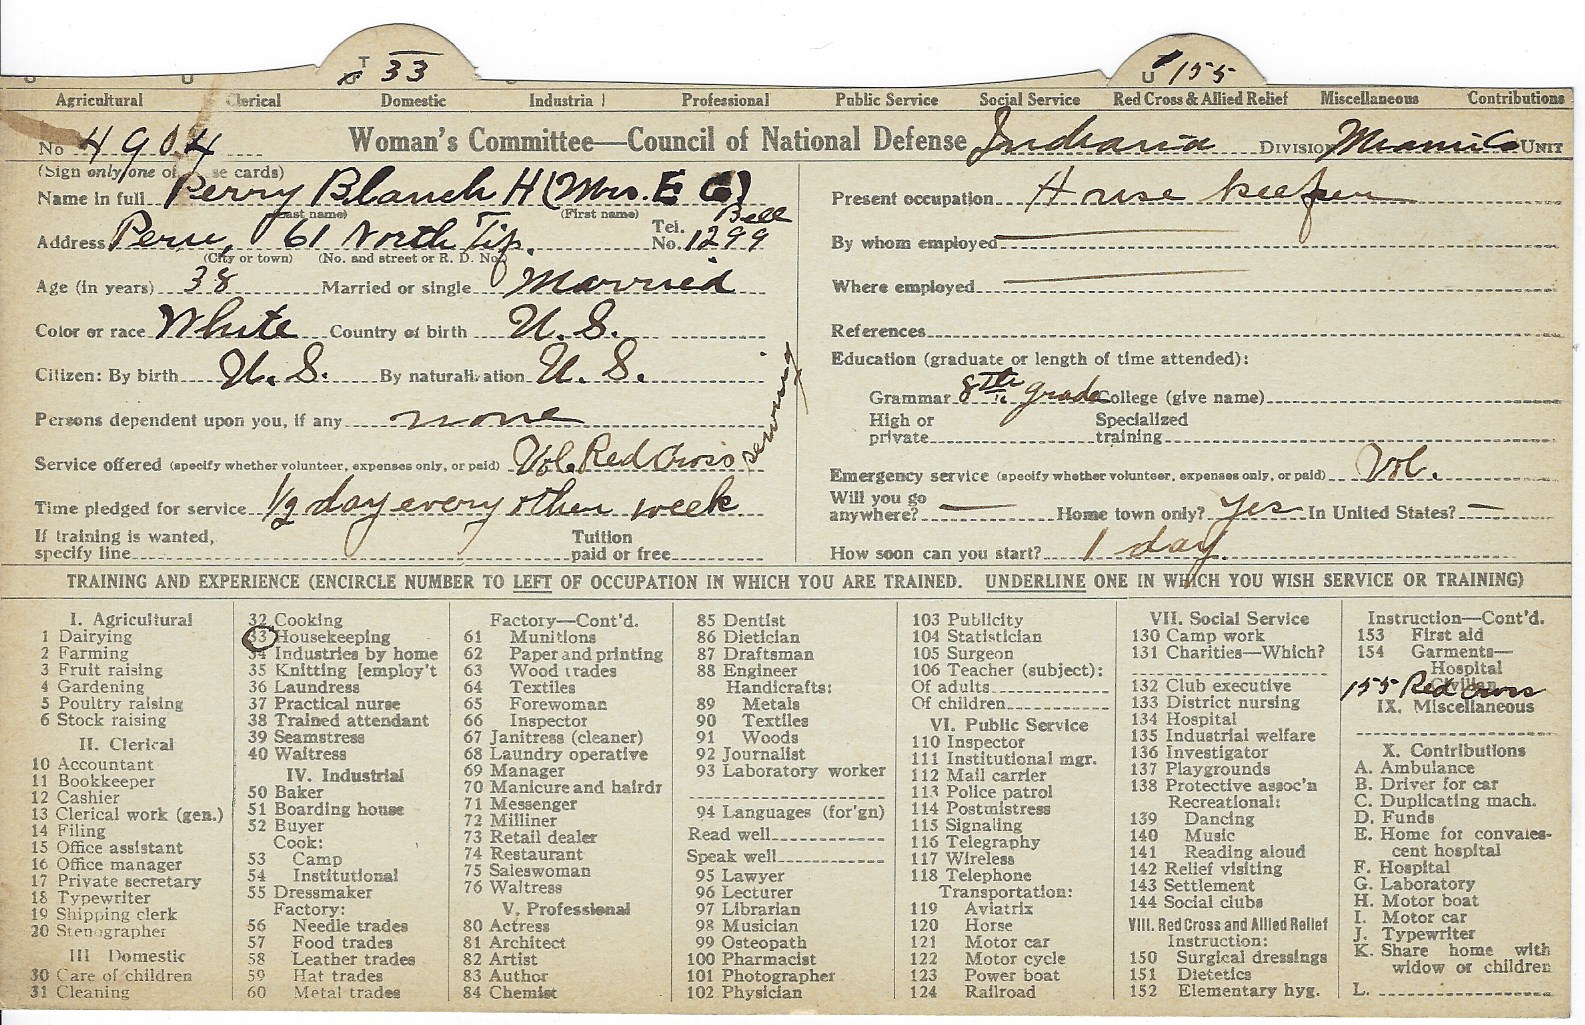 T 33
U 155
Agricultural Clerical Domestic Industrial Professional Public Service Social Service Red Cross & Allied Relief Miscellaneous Contributions
No 4904 Woman's Committee—Council of National Defense Indiana Division Miami Co Unit
(Sign only one of these cards)
Name in full Perry Blanch H (Mrs. E G)
(Last name) (First name)
Address Peru, 61 North Tip. Tel. No. Bell 1299
(City or town) (No. and street or R. D. No.)
Age (in years) 38 Married or single Married
Color or race White Country of birth U. S.
Citizen: By birth U. S. By naturalization U. S.
Persons dependent upon you, if any none
Service offered (specify whether volunteer, expenses only, or paid) Vol. Red Cross sewing
Time pledged for service 1/2 day every other week
If training is wanted,
specify line Tuition paid or free
Present occupation House keeper
By whom employed —
Where employed —
References
Education (graduate or length of time attended):
Grammar 8th grade College (give name)
High or private Specialized training
Emergency service (specify whether volunteer, expenses only, or paid) Vol.
Will you go anywhere? — Home town only? Yes In United States? —
How soon can you start? 1 day.
TRAINING AND EXPERIENCE (ENCIRCLE NUMBER TO LEFT OF OCCUPATION IN WHICH YOU ARE TRAINED. UNDERLINE ONE IN WHICH YOU WISH SERVICE OR TRAINING)
I. Agricultural
1 Dairying
2 Farming
3 Fruit raising
4 Gardening
5 Poultry raising
6 Stock raising
II. Clerical
10 Accountant
11 Bookkeeper
12 Cashier
13 Clerical work (gen.)
14 Filing
15 Office assistant
16 Office manager
17 Private secretary
18 Typewriter
19 Shipping clerk
20 Stenographer
III Domestic
30 Care of children
31 Cleaning
32 Cooking
33 Housekeeping
34 Industries by home
35 Knitting [employ't
36 Laundress
37 Practical nurse
38 Trained attendant
39 Seamstress
40 Waitress
IV. Industrial
50 Baker
51 Boarding house
52 Buyer
Cook:
53 Camp
54 Institutional
55 Dressmaker
Factory:
56 Needle trades
57 Food trades
58 Leather trades
59 Hat trades
60 Metal trades
Factory—Cont'd.
61 Munitions
62 Paper and printing
63 Wood trades
64 Textiles
65 Forewoman
66 Inspector
67 Janitress (cleaner)
68 Laundry operative
69 Manager
70 Manicure and hairdr
71 Messenger
72 Milliner
73 Retail dealer
74 Restaurant
75 Saleswoman
76 Waitress
V. Professional
80 Actress
81 Architect
82 Artist
83 Author
84 Chemist
85 Dentist
86 Dietician
87 Draftsman
88 Engineer
Handicrafts:
89 Metals
90 Textiles
91 Woods
92 Journalist
93 Laboratory worker
94 Languages (for'gn)
Read well
Speak well
95 Lawyer
96 Lecturer
97 Librarian
98 Musician
99 Osteopath
100 Pharmacist
101 Photographer
102 Physician
103 Publicity
104 Statistician
105 Surgeon
106 Teacher (subject):
Of adults
Of children
VI. Public Service
110 Inspector
111 Institutional mgr.
112 Mail carrier
113 Police patrol
114 Postmistress
115 Signaling
116 Telegraphy
117 Wireless
118 Telephone
Transportation:
119 Aviatrix
120 Horse
121 Motor car
122 Motor cycle
123 Power boat
124 Railroad
VII. Social Service
130 Camp work
131 Charities—Which?
132 Club executive
133 District nursing
134 Hospital
135 Industrial welfare
136 Investigator
137 Playgrounds
138 Protective assoc'n
Recreational:
139 Dancing
140 Music
141 Reading aloud
142 Relief visiting
143 Settlement
144 Social clubs
VIII. Red Cross and Allied Relief
Instruction:
150 Surgical dressings
151 Dietetics
152 Elementary hyg.
Instruction—Cont'd.
153 First aid
154 Garments—
Hospital
Civilian
155 Red Cross
IX. Miscellaneous
X. Contributions
A. Ambulance
B. Driver for car
C. Duplicating mach.
D. Funds
E. Home for convalescent hospital
F. Hospital
G. Laboratory
H. Motor boat
I. Motor car
J. Typewriter
K. Share home with
widow or children
L.